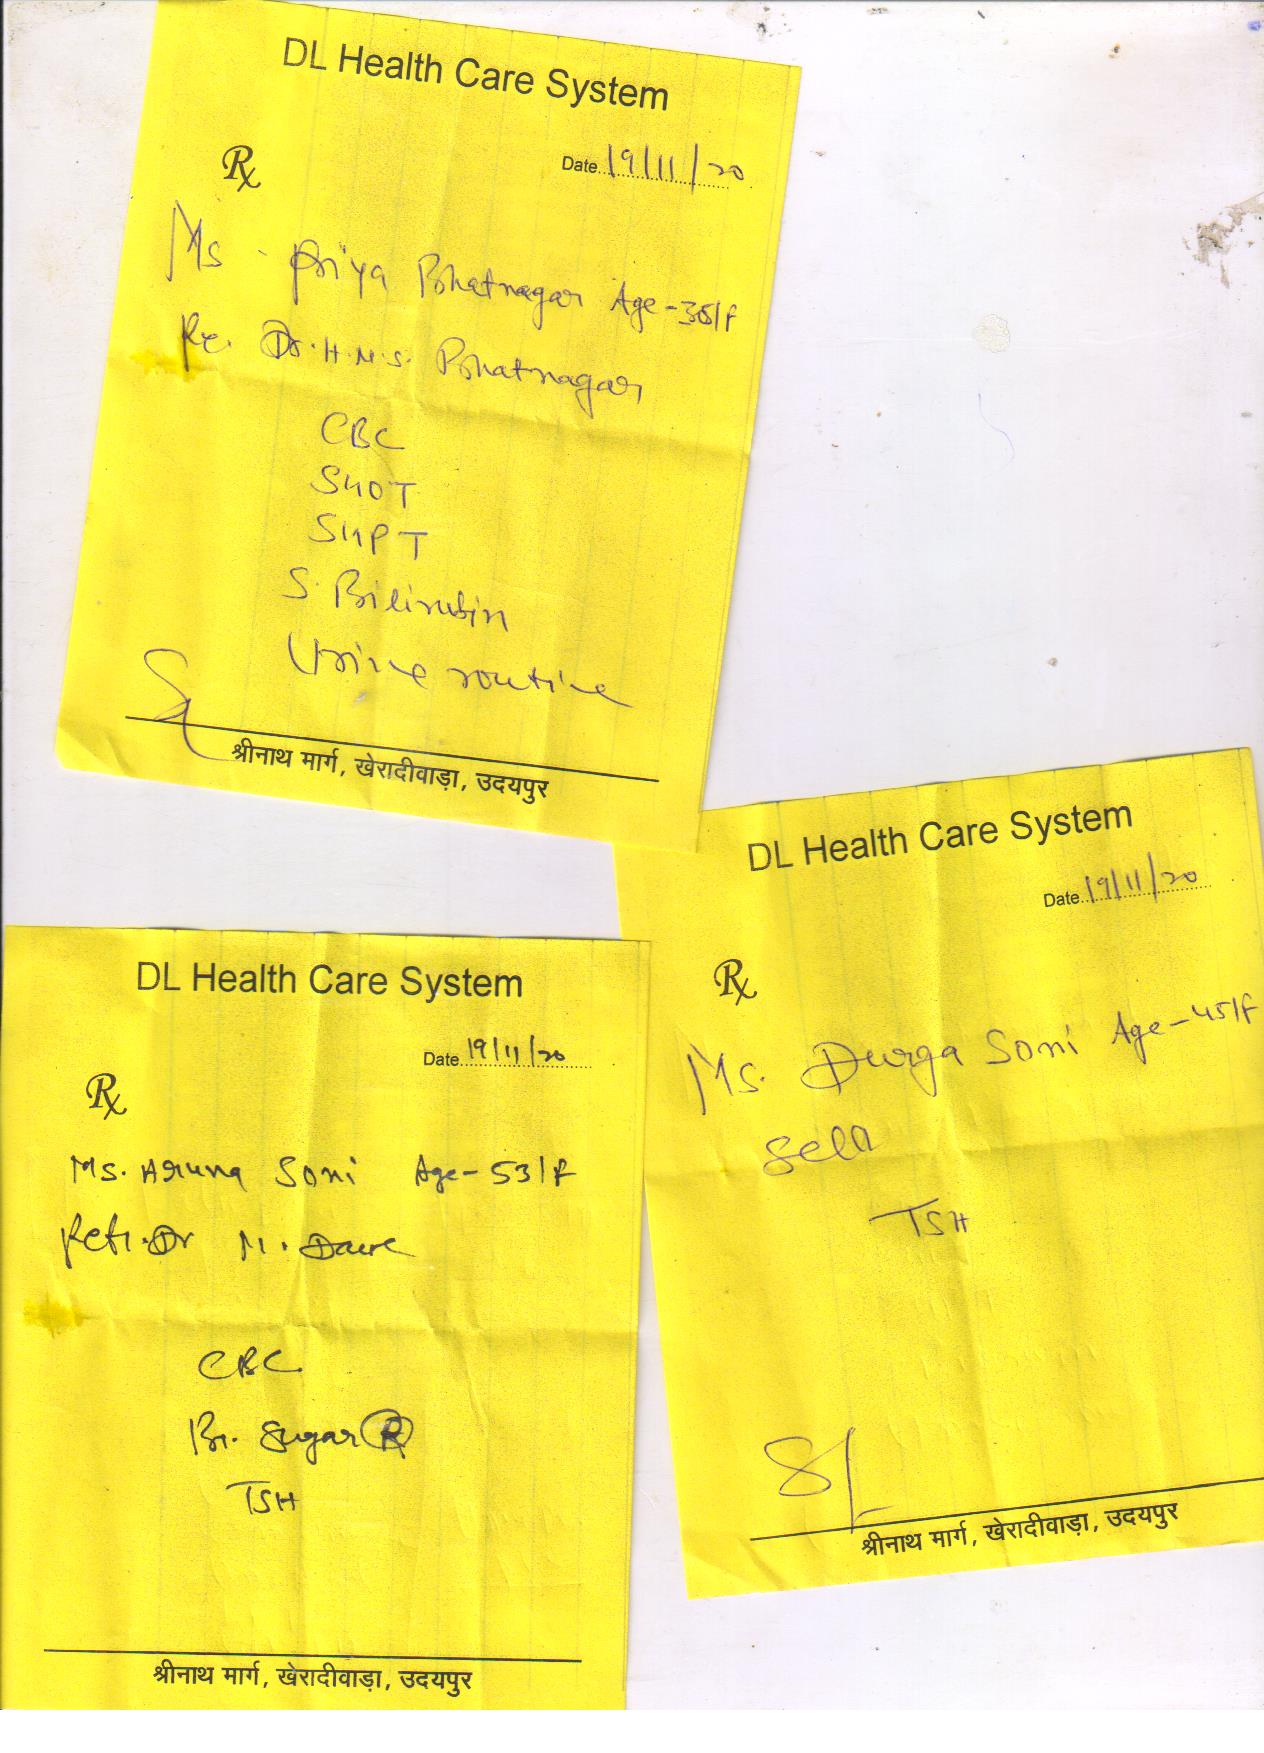 DL Health Care System
Date 19/11/20
Rx
Ms - Priya Bhatnagar Age-
Dr. H.M.S. Bhatnagar
CBC
SGOT
SGPT
S. Bilirubin
Urine routine
श्रीनाथ मार्ग, खेरादीवाड़ा, उदयपुर
DL Health Care System
Date 19/11/20
Rx
Ms. Durga Soni Age-45/F
Self
TSH
श्रीनाथ मार्ग, खेरादीवाड़ा, उदयपुर
DL Health Care System
Date 19/11/20
Rx
Ms. Aruna Soni Age-53/F
Dr M. Dave
CBC
Bl. Sugar R
TSH
श्रीनाथ मार्ग, खेरादीवाड़ा, उदयपुर